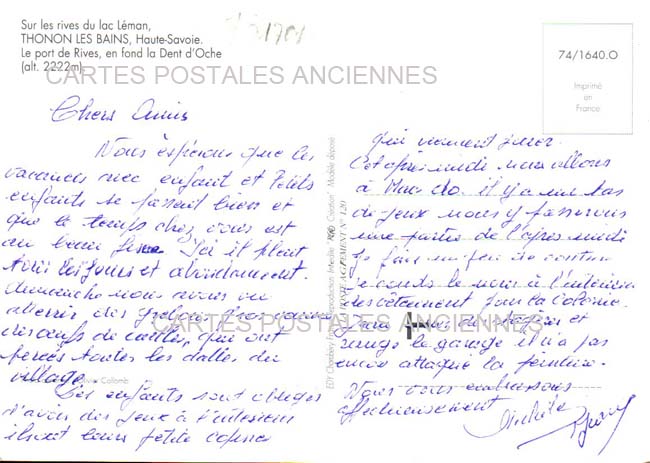 Sur les rives du lac Léman,
THONON LES BAINS, Haute-Savoie.
Le port de Rives, en fond la Dent d'Oche
(alt. 2222m)
74/1640.O
Imprimé
en
France
CARTES POSTALES ANCIENNES
Chers Amis
Nous espérons que les
vacances avec enfant et Petits
enfants se passent bien et
que le temps chez vous est
au beau Ici il pleut
tous les jours et abondamment.
dimanche nous avons vu
des grelons gros comme
des œufs de cailles, qui ont
percés toutes les dalles du
village
Les enfants sont obligés
d'avoir des jeux à l'intérieur
ils ont leurs petits copains
qui viennent jouer.
Cet après midi nous allons
à il y a un tas
de jeux nous y passerons
une partie de l'après midi
Je fais un peu de couture
je couds le nous à l'intérieur
des vêtement pour la Colonie.
et
range le garage il n'a pas
encore attaqué la peinture.
Nous vous embrassons
affectueusement
CARTES POSTALES ANCIENNES